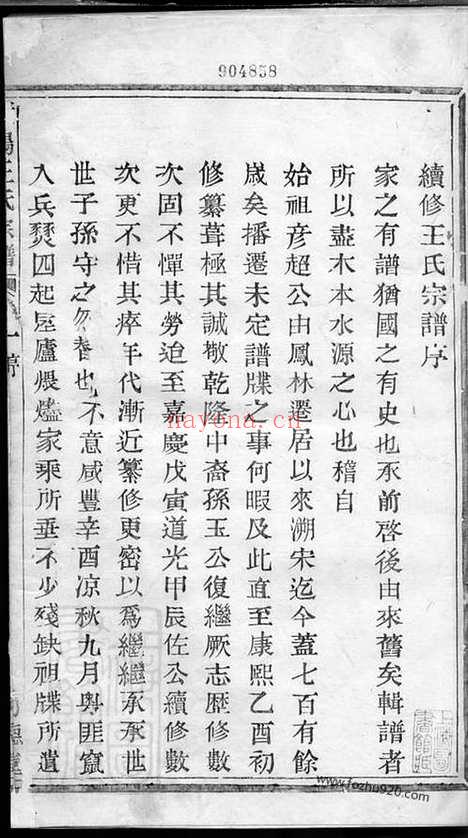 904838
續修王氏宗譜序
家之有譜猶國之有史也承前啓後由來舊矣輯譜者
所以盡木本水源之心也稽自
始祖彦超公由鳳林遷居以來溯宋迄今蓋七百有餘
歲矣播遷未定譜牒之事何暇及此直至康熙乙酉初
修纂葺極其誠敬乾隆中裔孫玉公復繼厥志歷修數
次固不憚其勞迨至嘉慶戊寅道光甲辰佐公續修數
次更不惜其瘁年代漸近纂修更密以爲繼繼承承世
世子孫守之勿替也不意咸豐辛酉凉秋九月粤匪竄
入兵燹四起屋廬煨燼家乘所垂不少殘缺祖牒所遺
王氏宗譜
序
nayona.cn
www.fozhu920.com